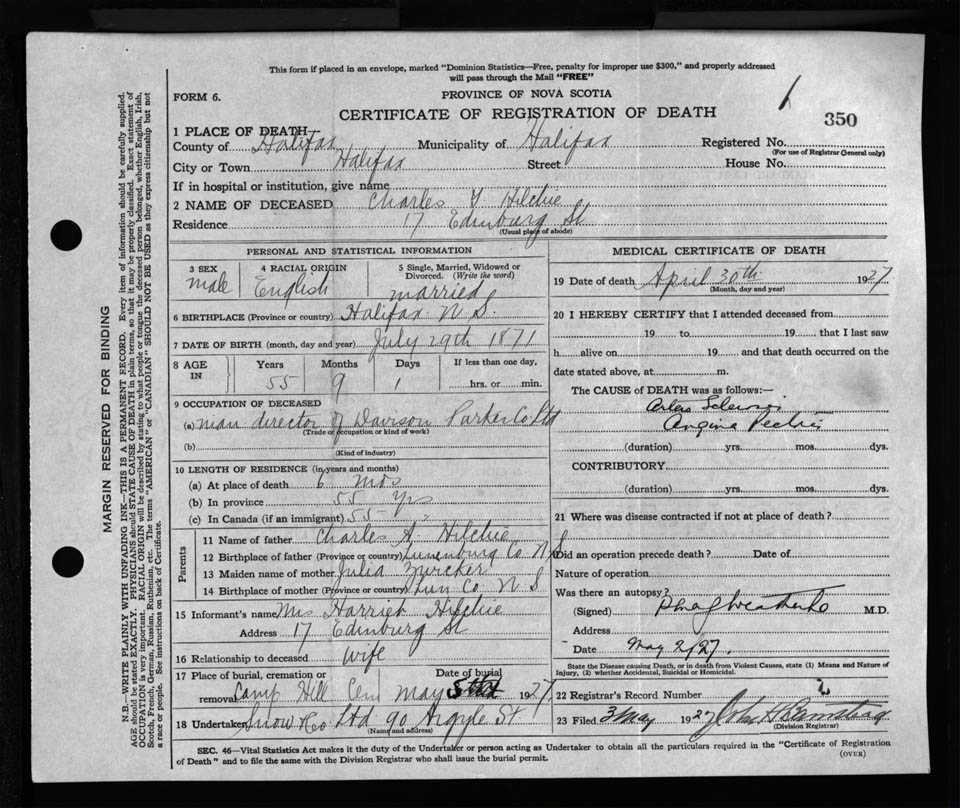 This form if placed in an envelope, marked "Dominion Statistics—Free, penalty for improper use $300," and properly addressed
will pass through the Mail "FREE"
FORM 6.
PROVINCE OF NOVA SCOTIA
CERTIFICATE OF REGISTRATION OF DEATH
350
1 PLACE OF DEATH—
County of Halifax Municipality of Halifax Registered No.
(For use of Registrar General only)
City or Town Halifax Street House No.
If in hospital or institution, give name
2 NAME OF DECEASED Charles Hilchie
Residence 17 Edinburg St
(Usual place of abode)
PERSONAL AND STATISTICAL INFORMATION
3 SEX 4 RACIAL ORIGIN 5 Single, Married, Widowed or
Divorced. (Write the word)
male English married
6 BIRTHPLACE (Province or country) Halifax N.S.
7 DATE OF BIRTH (month, day and year) July 29th 1871
8 AGE IN Years Months Days If less than one day,
55 9 1 hrs. or min.
9 OCCUPATION OF DECEASED
(a) man director of Davison Parker Co Ltd
(Trade or occupation or kind of work)
(b)
(Kind of industry)
10 LENGTH OF RESIDENCE (in years and months)
(a) At place of death 6 mos
(b) In province 55 yrs
(c) In Canada (if an immigrant) 55 "
Parents
11 Name of father Charles A. Hilchie
12 Birthplace of father (Province or country) Lunenburg Co N.S
13 Maiden name of mother Julia Zwicker
14 Birthplace of mother (Province or country) Lun Co. N S
15 Informant's name Mrs Harriet Hilchie
Address 17 Edinburg St
16 Relationship to deceased wife
17 Place of burial, cremation or removal Camp Hill Cem Date of burial May 1927
18 Undertaker Snow & Co Ltd 90 Argyle St
(Name and address)
MEDICAL CERTIFICATE OF DEATH
19 Date of death April 30th 1927
(Month, day and year)
20 I HEREBY CERTIFY that I attended deceased from
19 to 19 that I last saw
h alive on 19 and that death occurred on the
date stated above, at m.
The CAUSE OF DEATH was as follows:—
Angina Pectoris
(duration) yrs. mos. dys.
CONTRIBUTORY
(duration) yrs. mos. dys.
21 Where was disease contracted if not at place of death?
Did an operation precede death? Date of
Nature of operation
Was there an autopsy?
(Signed) M.D.
Address
Date May 2/27.
State the Disease causing Death, or in death from Violent Causes, state (1) Means and Nature of
Injury, (2) whether Accidental, Suicidal or Homicidal.
22 Registrar's Record Number 2
23 Filed 3 May 1927 John
(Division Registrar)
SEC. 46—Vital Statistics Act makes it the duty of the Undertaker or person acting as Undertaker to obtain all the particulars required in the "Certificate of Registration
of Death" and to file the same with the Division Registrar who shall issue the burial permit.
(OVER)
MARGIN RESERVED FOR BINDING
N.B.—WRITE PLAINLY WITH UNFADING INK—THIS IS A PERMANENT RECORD. Every item of information should be carefully supplied.
AGE should be stated EXACTLY. PHYSICIANS should STATE CAUSE OF DEATH in plain terms, so that it may be properly classified. Exact statement of
OCCUPATION is very important. RACIAL ORIGIN will be described by stating to what people or tongue the deceased person belonged, whether English, Irish,
Scotch, French, German, Russian, Ruthenian, etc. The terms "AMERICAN" or "CANADIAN" SHOULD NOT BE USED as they express citizenship but not
a race or people. See instructions on back of Certificate.